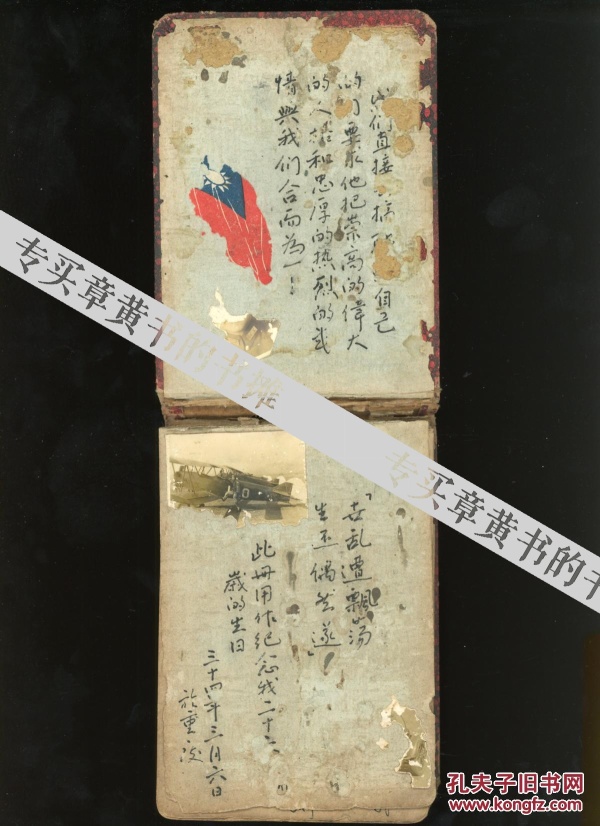 我们直接 自己
的 要求他把崇高的偉大
的人格和忠厚的热烈的
情與我们合而為一！
专买章黄书的书摊
专买章黄书的书
「世乱遭飄荡
生还偶然遂」
此册用作纪念我二十二
歲的生日
三十四年三月六日
於重
孔夫子旧书网
www.kongfz.com